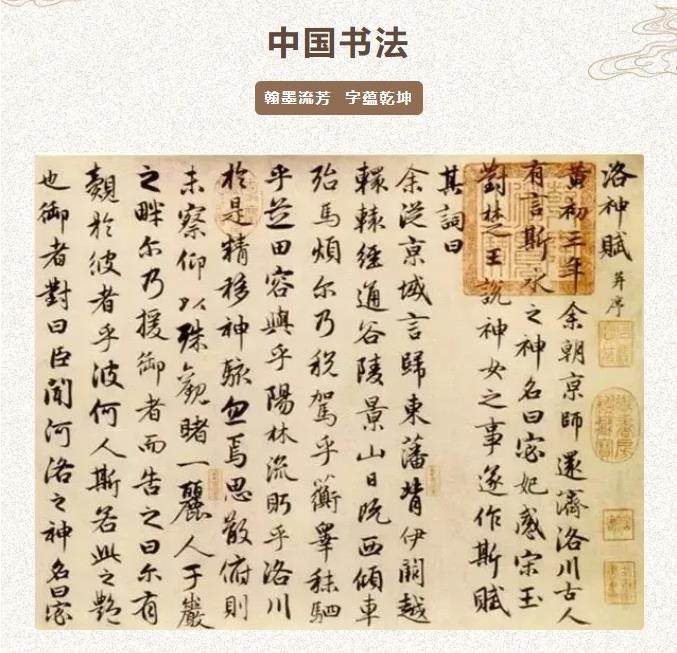 中国书法
翰墨流芳 字蕴乾坤
洛神賦 并序
黄初三年余朝京師還濟洛川古人
有言斯水之神名曰宓妃感宋玉
對楚王說神女之事遂作斯賦
其詞曰
余從京域言歸東藩背伊闕越
轘轅經通谷陵景山日既西傾車
殆馬煩尔乃稅駕乎蘅皋秣駟
乎芝田容與乎陽林流眄乎洛川
於是精移神駭忽焉思散俯則
未察仰以殊觀睹一麗人于巖
之畔尔乃援御者而告之曰尔有
覿於彼者乎彼何人斯若此之艷
也御者對曰臣聞河洛之神名曰宓